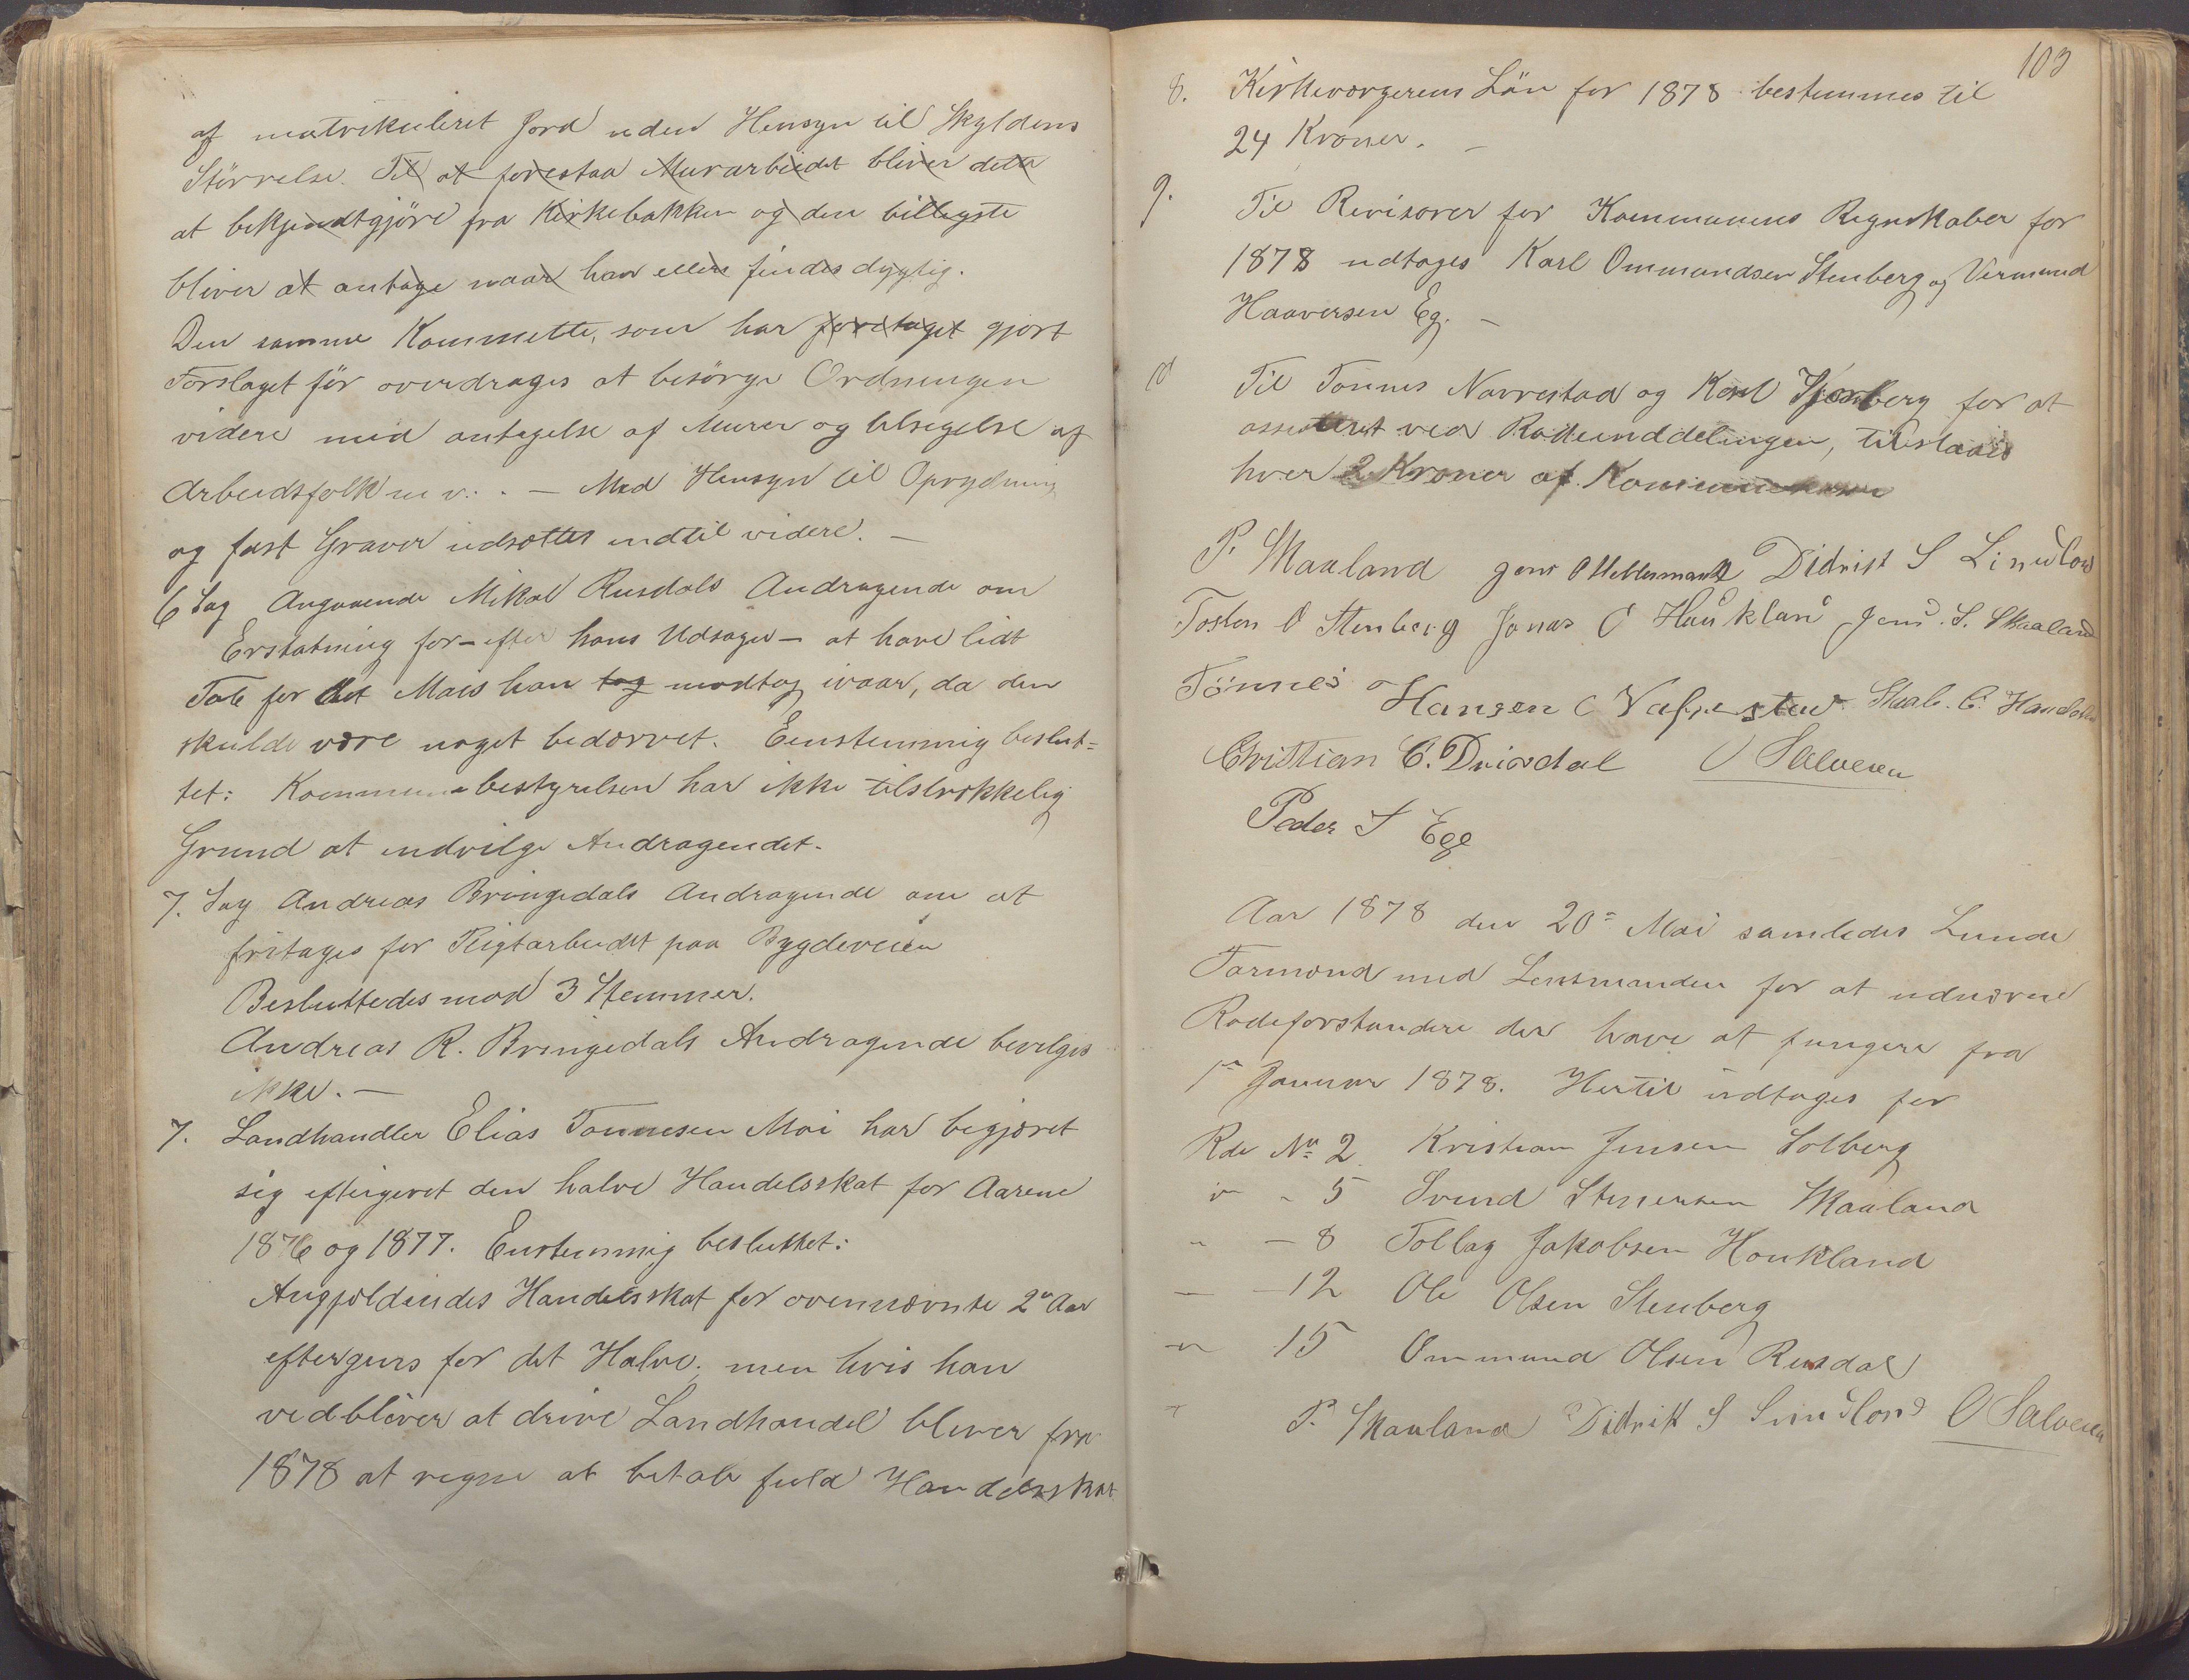 af matrikuleret Jord uden Hensyn til Skyldens
Störrelse. Til at forestaa Murarbeidet bliver dette
at bekjendtgjöre fra Kirkebakken og den billigste
bliver at antage naar han ellers findes dygtig.
Den samme Kommitte, som har foretaget gjort
Forslaget för overdrages at besörge Ordningen
videre med antagelse af Murer og tilsigelse af
Arbeidsfolk m v. . — Med Hensyn til Oprydning
og fast Graver udsættes indtil videre. —
6 Sag Angaaende Mikal Rusdals Andragende om
Erstatning for - efter hans Udsagn - at have lidt
Tab for det Mais han tog modtog ivaar, da den
skulde være noget bedærvet. Eenstemmig beslut=
tet: Kommunebestyrelsen har ikke tilstrækkelig
Grund at indvilge Andragendet.
7. Sag Andreas Bringedals Andragende om at
fritages for Pligtarbeidet paa Bygdeveien
Besluttedes mod 3 Stemmer.
Andreas R. Bringedals Andragende bevilges
ikke. —
7. Landhandler Elias Tonnesen Moi har begjæret
sig eftergivet den halve Handelsskat for Aarene
1876 og 1877. Enstemmig besluttet:
Angjældendes Handelsskat for ovennævnte 2de Aar
eftergives for det Halve, men hvis han
vedbliver at drive Landhandel bliver fra
1878 at regne at betale fuld Handelsskat
103
8. Kirkeværgerens Lön for 1878 bestemmes til
24 Kroner. —
9. Til Revisorer for Kommunens Regnskaber for
1878 udtages Karl Ommundsen Stenberg og Vermund
Haaversen Eg. —
10 Til Tönnes Navrestad og Karl Stenberg for at
assisteret ved Rodeinddelingen, tilstaaes
hver 2 Kroner af Kommunekassen
P. Skaaland Jens O Heldermark Didrik S Lindlov
Tosten O Stenberg Jonas O Haukland Jens. S. Skaaland
Tönnes Hansen Nafrestad
Christian C. Driesdal O Salvesen
Peder S Ege
Aar 1878 den 20de Mai samledes Lunde
Formænd med Lensmanden for at udnævne
Rodeforstandere der have at fungere fra
1ste Januar 1878. Hertil udtages for
Rde No 2. Kristian Jensen Solberg
" " 5 Svend Stenersen Skaaland
" — 8 Tollag Jakobsen Houkland
— — 12 Ole Olsen Stenberg
" 15 Ommund Olsen Rusdal
P. Skaaland Didrik S Lindlov O Salvesen